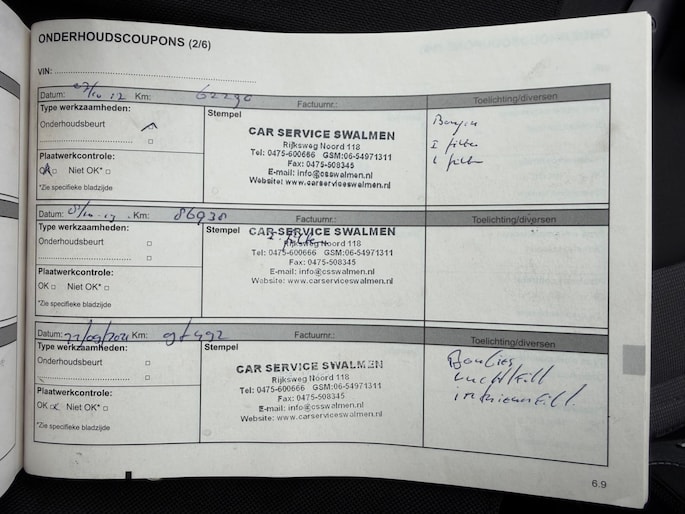 ONDERHOUDSCOUPONS (2/6)
VIN:
Datum: Km: 62290 Factuurnr.: Toelichting/diversen
Type werkzaamheden:
Onderhoudsbeurt
Plaatwerkcontrole:
OK Niet OK*
*Zie specifieke bladzijde
Stempel
CAR SERVICE SWALMEN
Rijksweg Noord 118
Tel: 0475-600666 GSM:06-54971311
Fax: 0475-508345
E-mail: info@csswalmen.nl
Website: www.carserviceswalmen.nl
I filter
L filter
Datum: Km: 86930 Factuurnr.: Toelichting/diversen
Type werkzaamheden:
Onderhoudsbeurt
Plaatwerkcontrole:
OK Niet OK*
*Zie specifieke bladzijde
Stempel
CAR SERVICE SWALMEN
Rijksweg Noord 118
Tel: 0475-600666 GSM:06-54971311
Fax: 0475-508345
E-mail: info@csswalmen.nl
Website: www.carserviceswalmen.nl
Datum: 22/09/2021 Km: Factuurnr.: Toelichting/diversen
Type werkzaamheden:
Onderhoudsbeurt
Plaatwerkcontrole:
OK Niet OK*
*Zie specifieke bladzijde
Stempel
CAR SERVICE SWALMEN
Rijksweg Noord 118
Tel: 0475-600666 GSM:06-54971311
Fax: 0475-508345
E-mail: info@csswalmen.nl
Website: www.carserviceswalmen.nl
luchtfilt
interieurfilt.
6.9